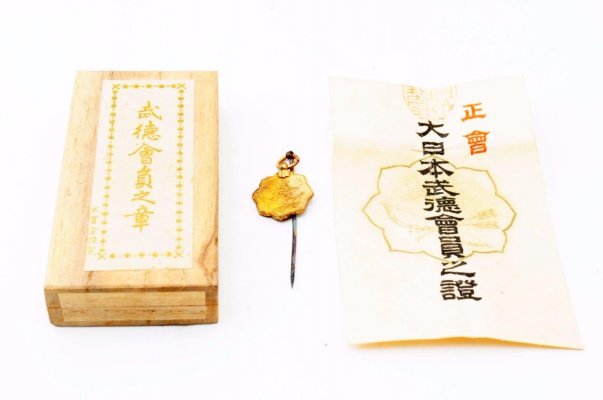 武德會員之章
正會
大日本武德會員之證